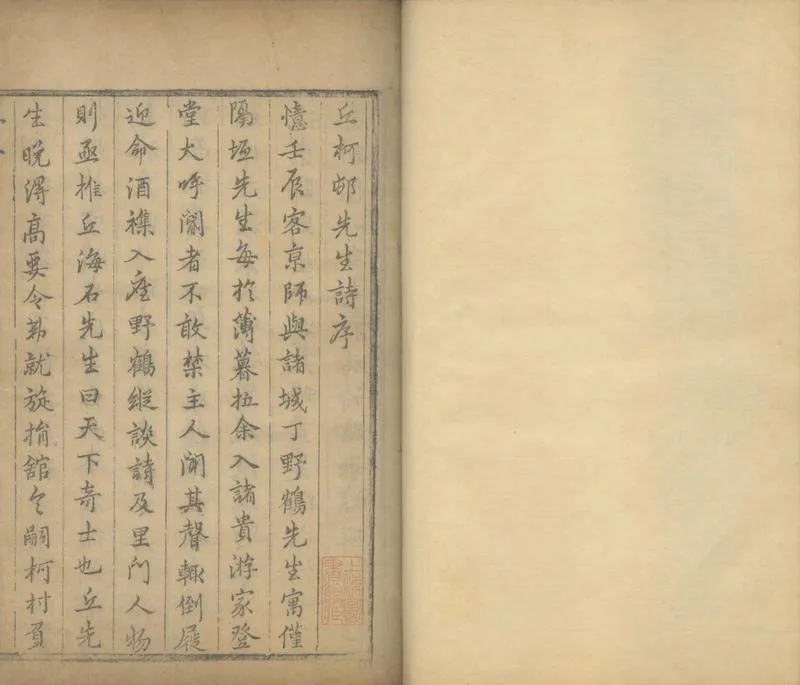 丘柯邨先生詩序
憶壬辰客京師與諸城丁野鶴先生寓僅
隔垣先生每於薄暮拉余入諸貴游家登
堂大呼閽者不敢禁主人聞其聲輒倒屐
迎命酒襍入座野鶴縱談詩及里門人物
則亟推丘海石先生曰天下奇士也丘先
生晚得高要令弟就旋捐舘令嗣柯村負